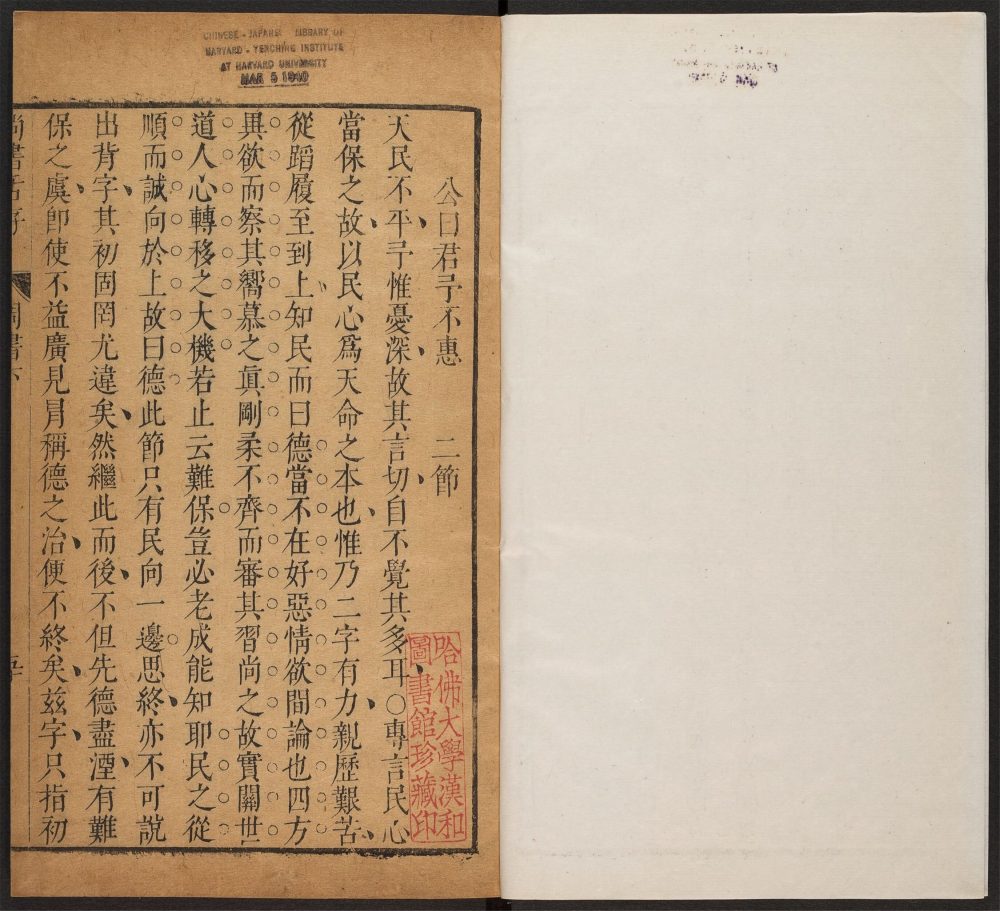 CHINESE-JAPANESE LIBRARY OF
HARVARD-YENCHING INSTITUTE
AT HARVARD UNIVERSITY
MAR 5 1940
公曰君予不惠　二節
天民不平予惟憂深故其言切自不覺其多耳○專言民心
當保之故以民心爲天命之本也惟乃二字有力親歷艱苦
從蹈履至到上知民而曰德當不在好惡情欲間論也四方
異欲而察其嚮慕之眞剛柔不齊而審其習尚之故實關世
道人心轉移之大機若止云難保豈必老成能知耶民之從
順而誠向於上故曰德此節只有民向一邊思終亦不可說
出背字其初固罔尤違矣然繼此而後不但先德盡湮有難
保之虞卽使不益廣見冐稱德之治便不終矣茲字只指初
尚書
周書下
哈佛大學漢和
圖書館珍藏印